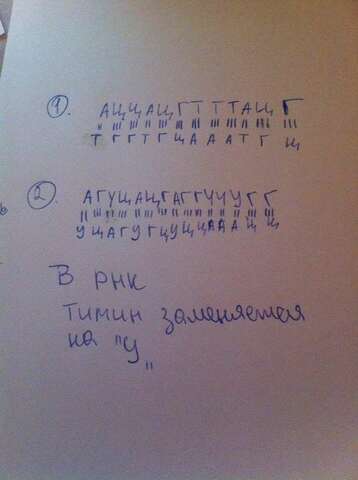 1. АЦЦАЦГТТТАЦГ
ТГГТГЦАААТГЦ
2. АГУЦАЦГАГГУУУГГ
УЦАГУГЦУЦЦАААЦЦ
В РНК
тимин заменяется
на "У"